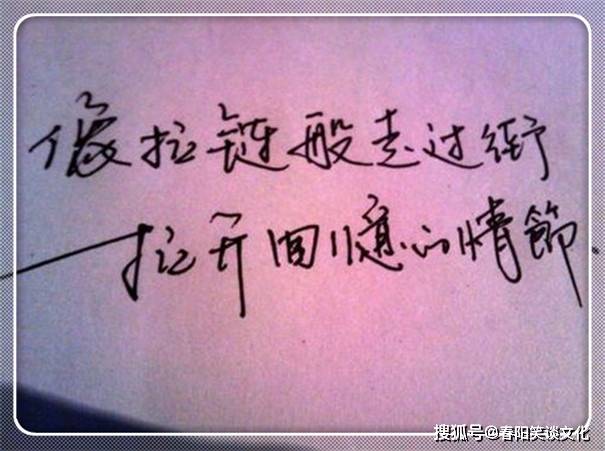 像拉链般走过街
拉开回憶的情節
搜狐号@春阳笑谈文化